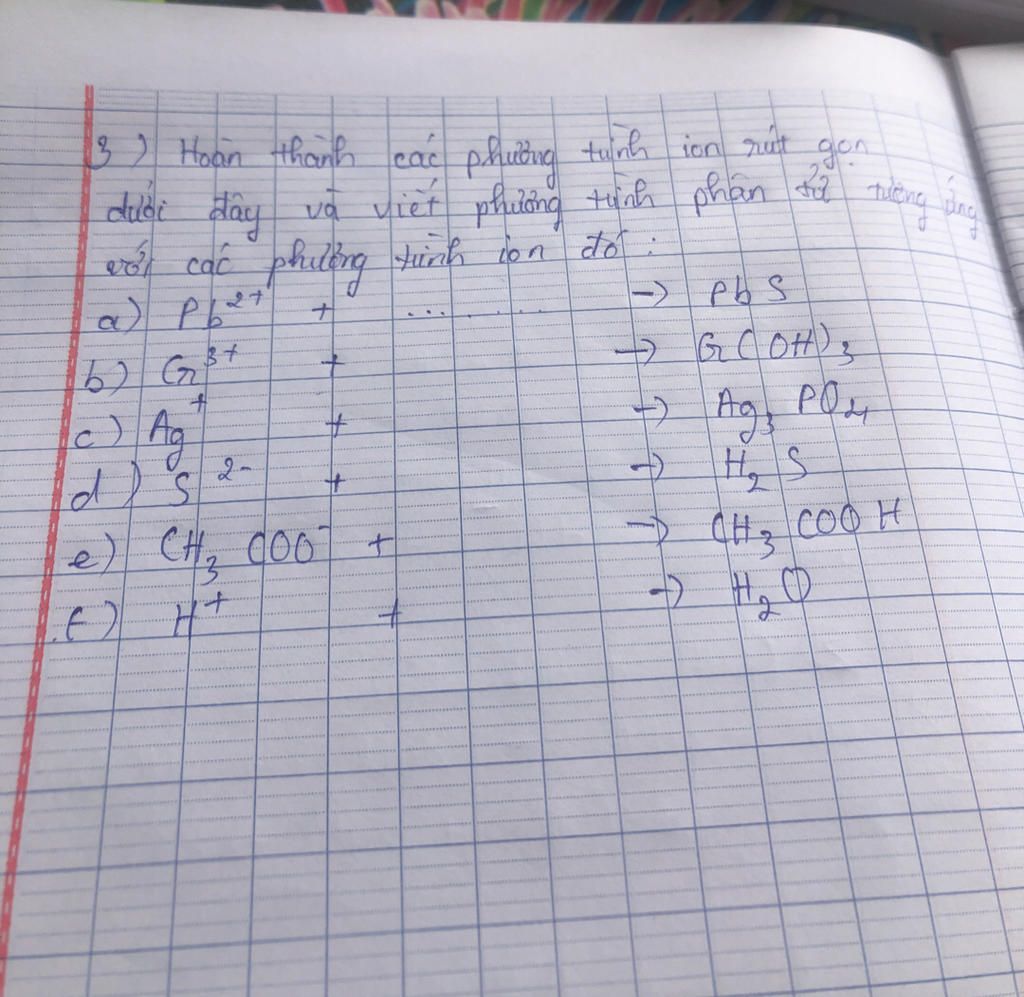 3) Hoàn thành các phương trình ion rút gọn
dưới đây và viết phương trình phân tử tương ứng
với các phương trình ion đó :
a) Pb²⁺ + ......... → PbS
b) Cr³⁺ + → Cr(OH)₃
c) Ag⁺ + → Ag₃PO₄
d) S²⁻ + → H₂S
e) CH₃COO⁻ + → CH₃COOH
f) H⁺ + → H₂O